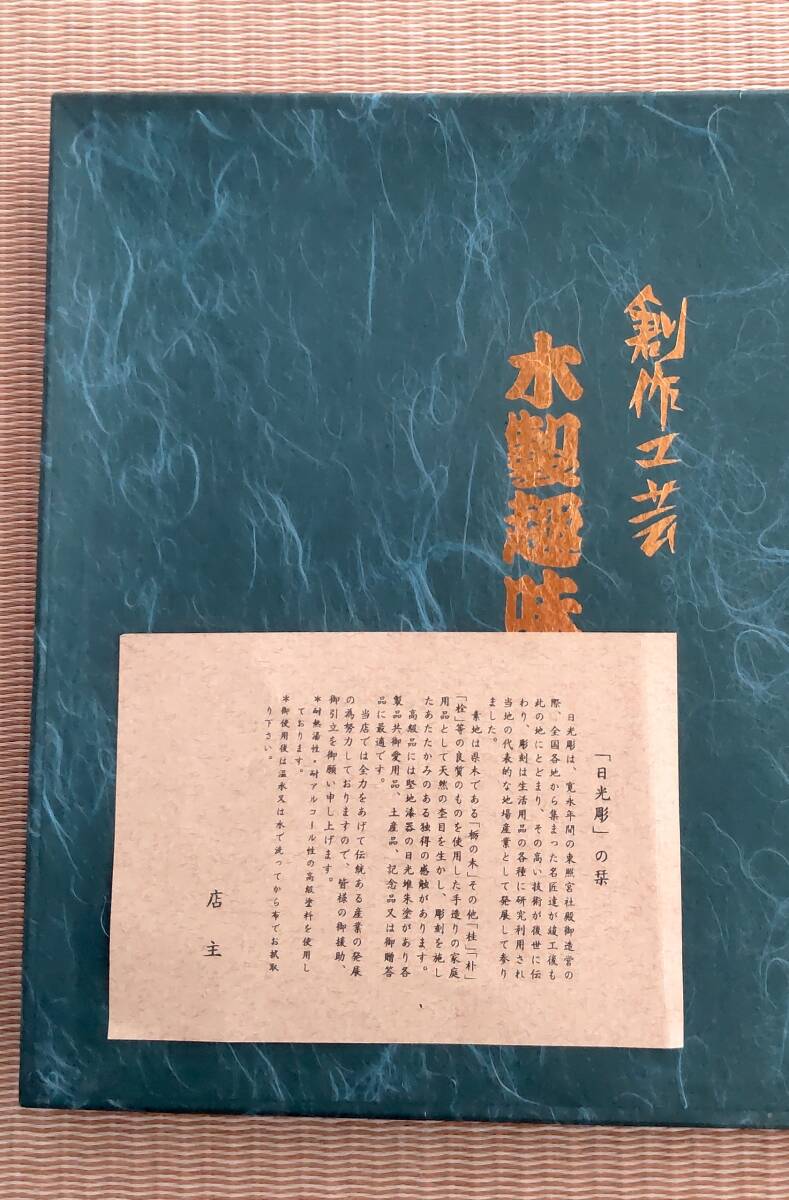 創作工芸
木製趣味
「日光彫」の栞
日光彫は、寛永年間の東照宮社殿御造営の
際、全国各地から集まった名匠達が竣工後も
此の地にとどまり、その高い技術が後世に伝
わり、彫刻は生活用品の各種に研究利用され
当地の代表的な地場産業として発展して参り
ました。
素地は県木である「栃の木」その他「桂」「朴」
「栓」等の良質のものを使用した手造りの家庭
用品として天然の杢目を生かし、彫刻を施し
たあたたかみのある独得の感触があります。
高級品には堅地漆器の日光堆朱塗があり各
製品共御愛用品、土産品、記念品又は御贈答
品に最適です。
当店では全力をあげて伝統ある産業の発展
の為努力しておりますので、皆様の御援助、
御引立を御願い申し上げます。
*耐熱湯性・耐アルコール性の高級塗料を使用し
ております。
*御使用後は温水又は水で洗ってから布でお拭取
り下さい。
店主